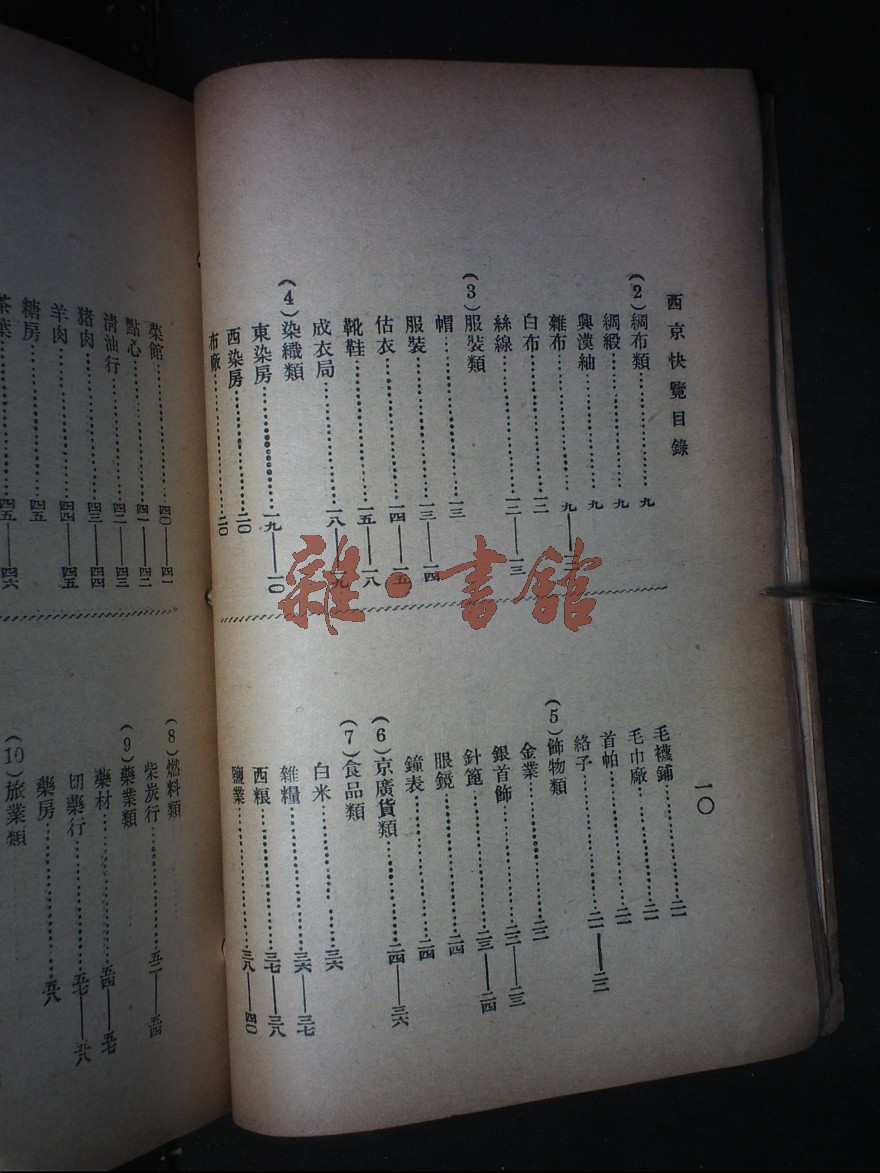 西京快覽目錄
一〇
(2)綢布類……九
綢緞……九
興漢紬……九
雜布……九——一二
白布……一二
絲線……一二——一三
(3)服裝類
帽……一三
服裝……一三——一四
估衣……一四——一五
靴鞋……一五——一八
成衣局……一八——一九
(4)染織類
東染房……一九——二〇
西染房……二〇
布廠……二〇
毛襪鋪……二一
毛巾廠……二一
首帕……二一
絡子……二一——二二
(5)飾物類
金業……二二
銀首飾……二二——二三
針篦……二三——二四
眼鏡……二四
鐘表……二四
(6)京廣貨類……二四——三六
(7)食品類
白米……三六
雜糧……三六——三七
西粮……三七——三八
鹽業……三八——四〇
菜館……四〇——四一
點心……四一——四二
清油行……四二——四三
猪肉……四三——四四
羊肉……四四——四五
糖房……四五
茶葉……四五——四六
(8)燃料類
柴炭行……五二——五四
(9)藥業類
藥材……五四——五七
切藥行……五七——五八
藥房……五八
(10)旅業類
雜·書舘